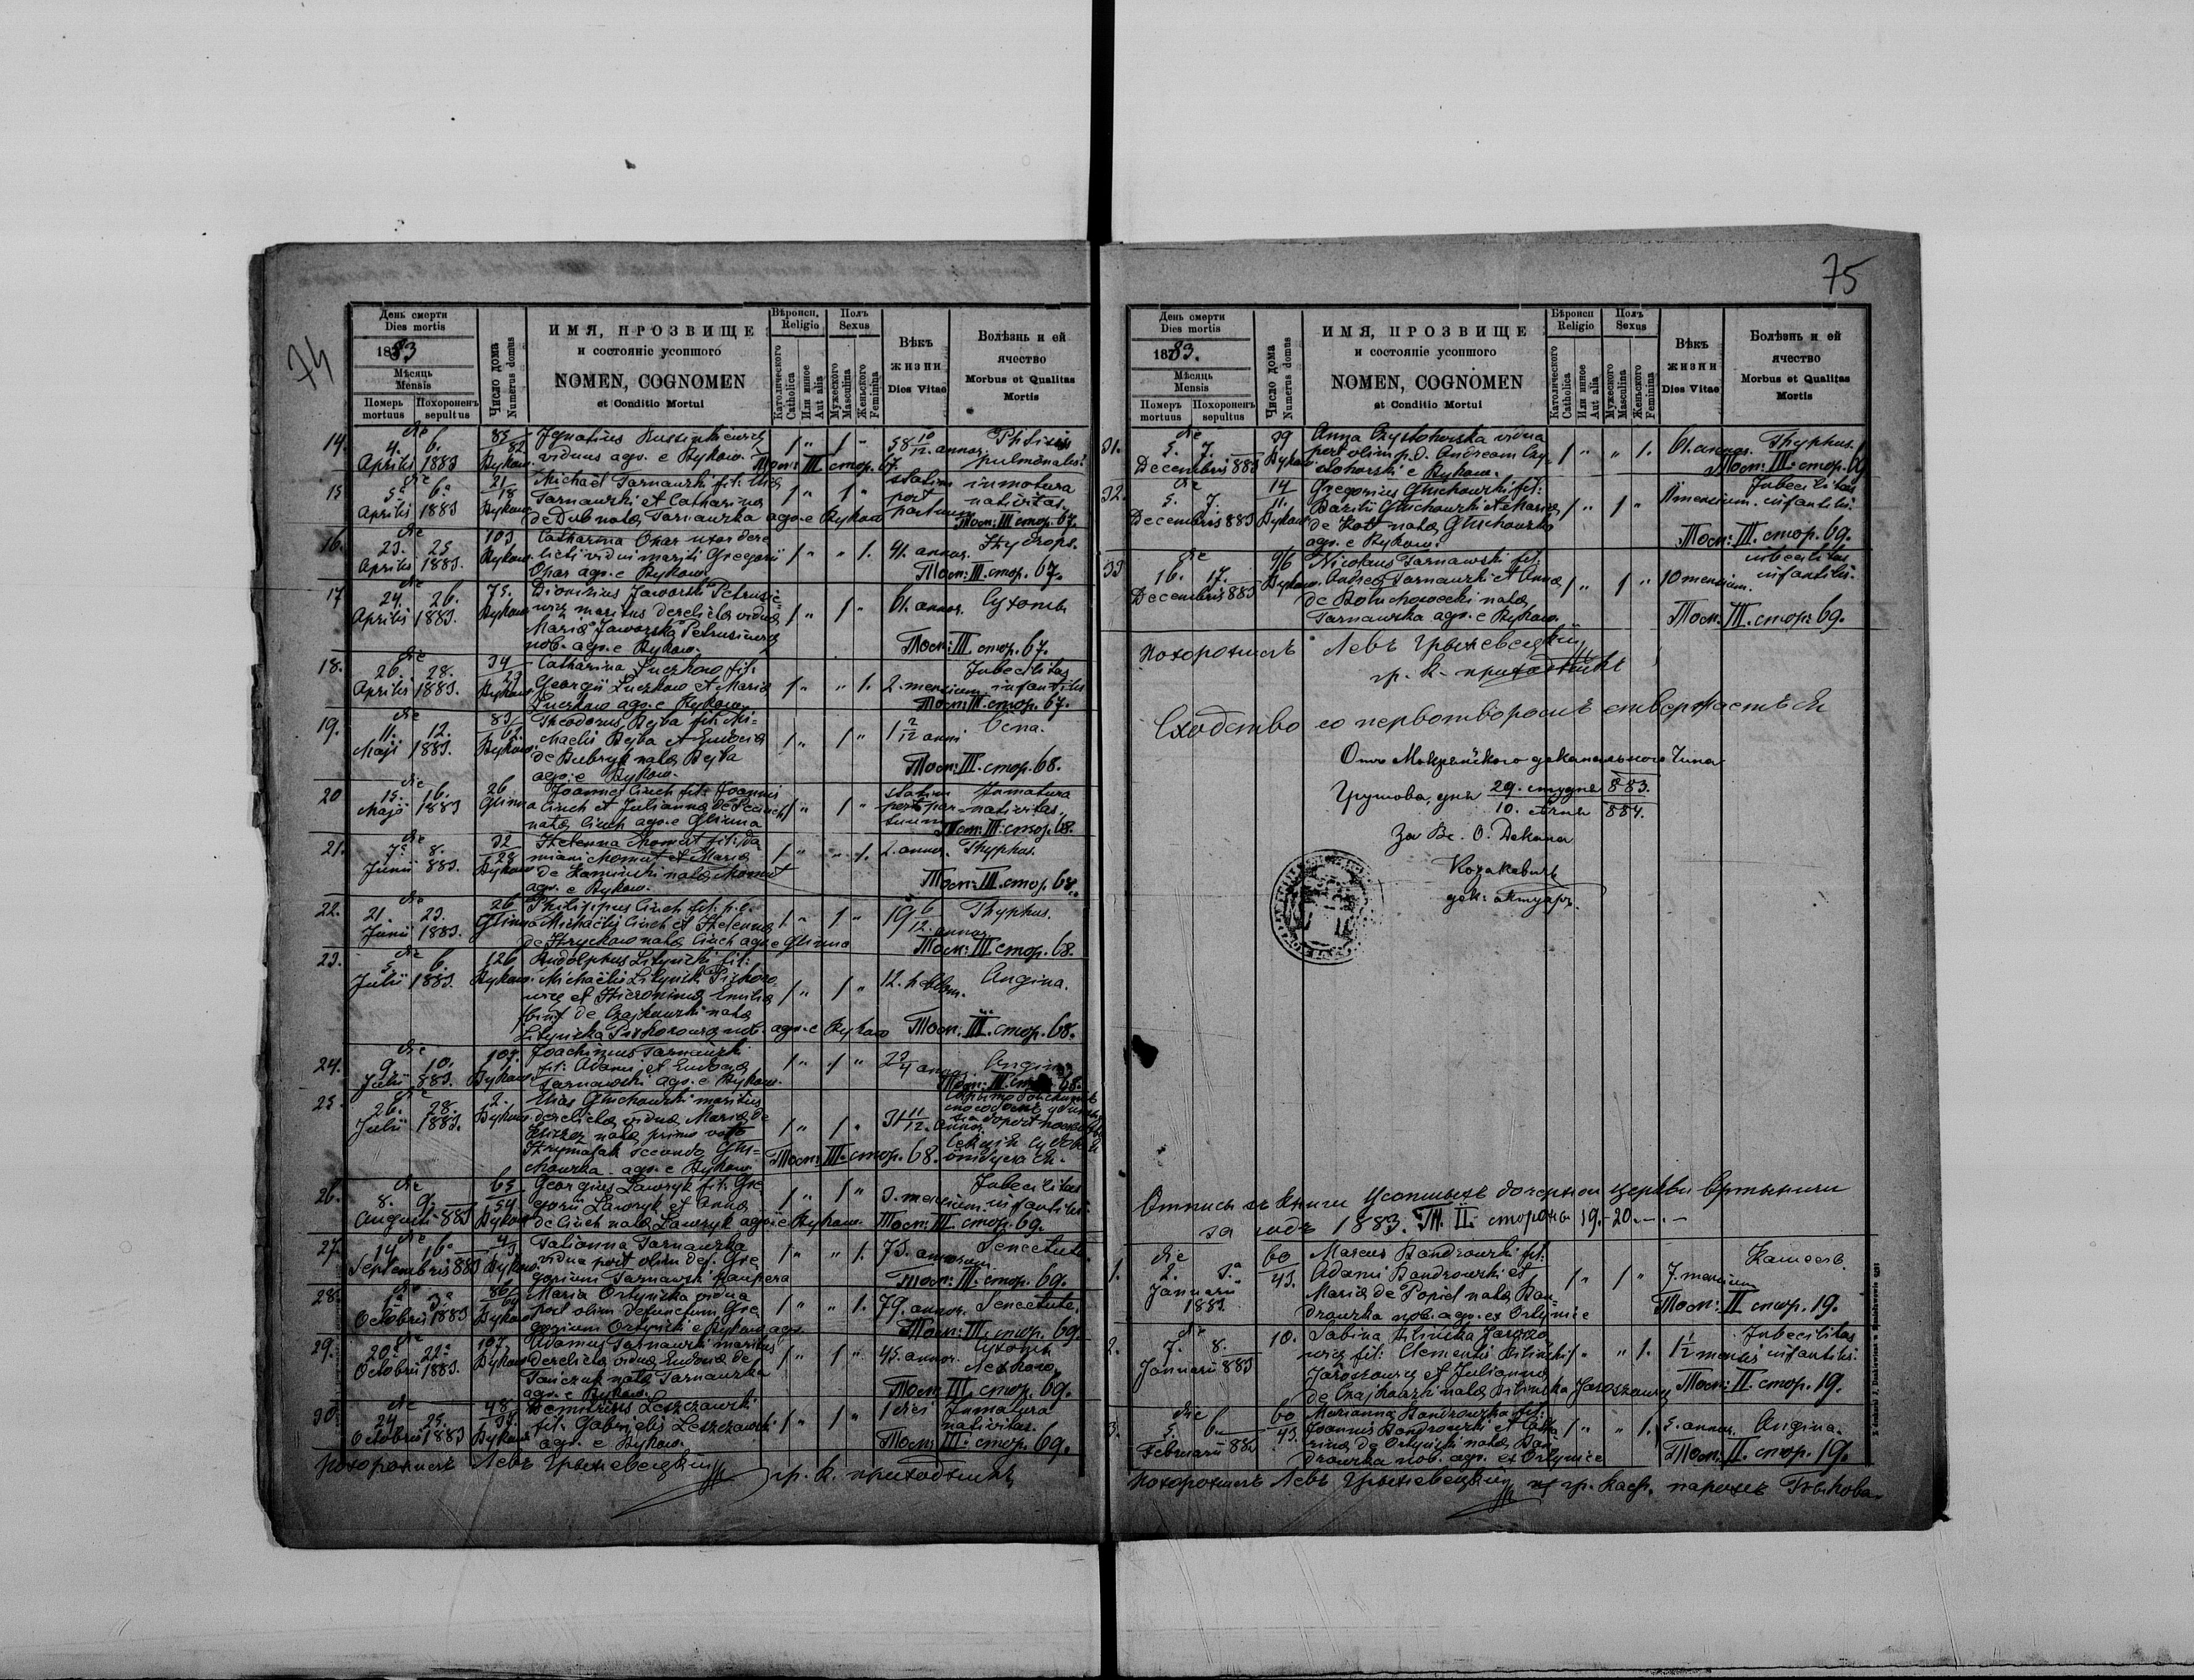 74
День смерти
Dies mortis
1883
Мѣсяць
Mensis
Померъ
mortuus
Похороненъ
sepultus
Число дома
Numerus domus
ИМЯ, ПРОЗВИЩЕ
и состоянiе усопшого
NOMEN, COGNOMEN
et Conditio Mortui
Вѣроисп.
Religio
Католического
Catholica
Или инное
Aut alia
Полъ
Sexus
Мужеского
Masculina
Женьского
Feminina
Вѣкъ
жизни
Dies Vitae
Болѣзнь и ей
ячество
Morbus et Qualitas
Mortis
14. die 4. 6. Aprilis 1883
83/82 Bykow
Ignatius
viduus agr. e Bykow.
1 " 1 "
58 10/12 annor.
Phtisis
pulmonalis.
Том: III. стор. 67.
15 die 5a 6a Aprilis 1883
21/18 Bykow
Michael Tarnawski fil: Eliae
Tarnawski et Catharina
de Dub nata Tarnawska agr. e Bykow
1 " 1 "
statim
post
partum
immatura
nativitas.
Том: III стор. 67.
16. die 23. 25 Aprilis 1883.
103 Bykow
Catharina Okar uxor dere
licti vidui mariti Gregorii
Okar agr. e Bykow
1 " " 1.
41. annor.
Hydrops.
Том: III. стор. 67.
17 die 24 26. Aprilis 1883.
75. Bykow
Dionisius Jaworski Petrusie
wicz maritus derelicta vidua
Maria Jaworska Petrusiewicz
nob. agr. e Bykow.
1 " 1 "
61. annor.
Сухоты
Том: III стор. 67.
18. die 26. 28. Aprilis 1883.
34/29 Bykow
Catharina Luczkow fil:
Georgii Luczkow et Maria
Luczkow agr. e Bykow
1 " " 1.
2. mensium
Imbecilitas
infantilis
Том: III. стор. 67.
19. die 11. 12. Maji 1883.
83/62. Bykow
Theodorus Bejba fil: Mi=
chaelis Bejba et Eudocia
de Bubryk nata Bejba
agr. e Bykow.
1 " 1 "
1 2/12 anni
Оспа.
Том: III. стор. 68.
20 die 15. 16. Maji 1883
26 Glinna
Joannes Cinch fil: Joannis
Cinch et Julianna de
nata Cinch agr. e Glinna
1 " 1 "
statim
post par=
tum
Immatura
nativitas.
Том: III: стор. 68.
21. die 7. 8. Junii 883.
32/28 Bykow
Helenna Momut fil: Da
miani Momut et Maria
de Kaminski nata Momut
agr. e Bykow.
1 " " 1.
2. annor.
Thyphus.
Том: III. стор. 68.
22. die 21. 23. Junii 1883.
26 Glinna
Philippus Cinch fil: p. d.
Michaelis Cinch et Helenna
de Hryckow nata Cinch agr. e Glinna
1 " 1 "
19 6/12. annor
Thyphus.
Том: III стор. 68.
23. die 5 6 Julii 1883.
126 Bykow
Rudolphus Litynski fil:
Michaelis Litynski
et Hieronima Emilia
de Czajkowski nata
Litynska nob. agr. e Bykow
1 " 1 "
12. hebdm.
Angina.
Том: III. стор. 68.
24. die 9. 10. Julii 883.
107. Bykow
Joachimus Tarnawski
fil: Adami et Eudocia
Tarnawski agr. e Bykow.
1 " 1 "
annor
Angina
Том: III. стор. 68.
25. die 26. 28. Julii 1883.
2. Bykow
Elias Gluchowski maritus
derelicta vidua Maria de
nata primo voto
secundo Glu=
chowska agr. e Bykow
1 " 1 "
31 11/12. annor
Том: III. стор. 68.
26. die 8. 9. Augusti 883
65/54 Bykow
Georgius Lawryk fil: Gre
gorii Lawryk et Anna
de Cinch nata Lawryk agr. e Bykow.
1 " 1 "
3. mensium
Imbecilitas
infantilis
Том: III. стор. 69.
27. die 14 16a Septembris 883
Bykow
Tatianna Tarnawska
vidua post olim def. Gre
gorium Tarnawski paupera
1 " " 1.
75. annorum
Senectute.
Том: III. стор. 69.
28. die 1a 3a Octobris 1883
86/69 Bykow
Maria Ortynska vidua
post olim defunctum Gre
gorium Ortynski e Bykow agr.
1 " " 1.
79. annor.
Senectute.
Том: III. стор. 69
29. die 20a 22a Octobris 1883.
107. Bykow
Adamus Tarnawski maritus
derelicta vidua Eudocia de
Tanczuk nata Tarnawska
agr. e Bykow.
1 " 1 "
45. annor.
Сухоты
Том: III. стор. 69.
30. die 24 25. Octobris 1883
48/37. Bykow
Demetrius Leszczawski
fil: Gabrielis Leszczawski
agr. e Bykow.
1 " 1 "
1 diei
Immatura
nativitas.
Том: III. стор. 69.
похоронилъ Левъ гр. к. приходникъ
75
День смерти
Dies mortis
1883.
Мѣсяць
Mensis
Померъ
mortuus
Похороненъ
sepultus
Число дома
Numerus domus
ИМЯ, ПРОЗВИЩЕ
и состоянiе усопшого
NOMEN, COGNOMEN
et Conditio Mortui
Вѣроисп
Religio
Католического
Catholica
Или инное
Aut alia
Полъ
Sexus
Мужеского
Masculina
Женьского
Feminina
Вѣкъ
жизни
Dies Vitae
Болѣзнь и ей
ячество
Morbus et Qualitas
Mortis
31. die 5. 7. Decembris 883
39 Bykow
Anna Czystohorska vidua
post olim p. d. Andream Czy=
stohorski e Bykow.
1 " " 1.
61. annor.
Thyphus.
Том: III. стор. 69
32. die 5. 7. Decembris 883
14/11. Bykow
Gregorius Gluchowski fil:
Basilii Gluchowski et Maria
de Kot nata Gluchowska
agr. e Bykow.
1 " 1 "
mensium
Imbecilitas
infantilis.
Том: III. стор. 69.
33 die 16. 17. Decembris 883
96 Bykow
Nicolaus Tarnawski fil:
Andrea Tarnawski et Anna
de Boluchowecki nata
Tarnawska agr. e Bykow
1 " 1 "
10 mensium.
imbecilitas
infantilis.
Том: III. стор. 69.
похоронилъ Левъ
гр. к. приходникъ
Сходство со первотворомъ стверждаетъ ся
Отъ Мокрянского деканального Чина
Грушова, дня 29. студня 883.
10. сѣчня 884.
За Вс. О. Декана
Козакевичъ
дек: актуаръ.
Отпись съ книги Усопшыхъ дочерной церкви Ортыничи
за годъ 1883. Т. II. сторона 19.-20.-.-
1. die 2. 3.a Januarii 1883
60/43.
Marcus Bandrowski fil:
Adami Bandrowski et
Maria de Popiel nata Ban
drowska nob. agr. ex Ortynice
1 " 1 "
7. mensium
Том: II стор. 19.
2. die 7. 8. Januarii 883
10.
Sabina Bilinska Jarosze
wicz fil: Clementis Bilinski
Jaroszewicz et Julianna
de Czajkowski nata Bilinska Jaroszewicz
1 " " 1.
1 1/2 mensis
Imbecilitas
infantilis.
Том: II. стор. 19.
3. die 5. 6. Februarii 883
60/43.
Marianna Bandrowska fil:
Joannis Bandrowski et Catha
rina de Ortynski nata Ban
drowska nob. agr. ex Ortynice
1 " " 1.
5. annor.
Angina.
Том: II. стор. 19.
похоронилъ Левъ гр. каф. парохъ Быкова